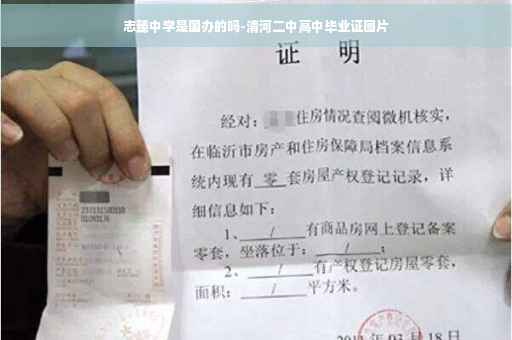 志臻中学是国办的吗-清河二中高中毕业证图片
证 明
经对：住房情况查阅微机核实，
在临沂市房产和住房保障局档案信息系
统内现有 零 套房屋产权登记记录，详
细信息如下：
1、 / 有商品房网上登记备案
零套，坐落位于： / ；
2、 / 有产权登记房屋零套，
面积： / 平方米。
18日